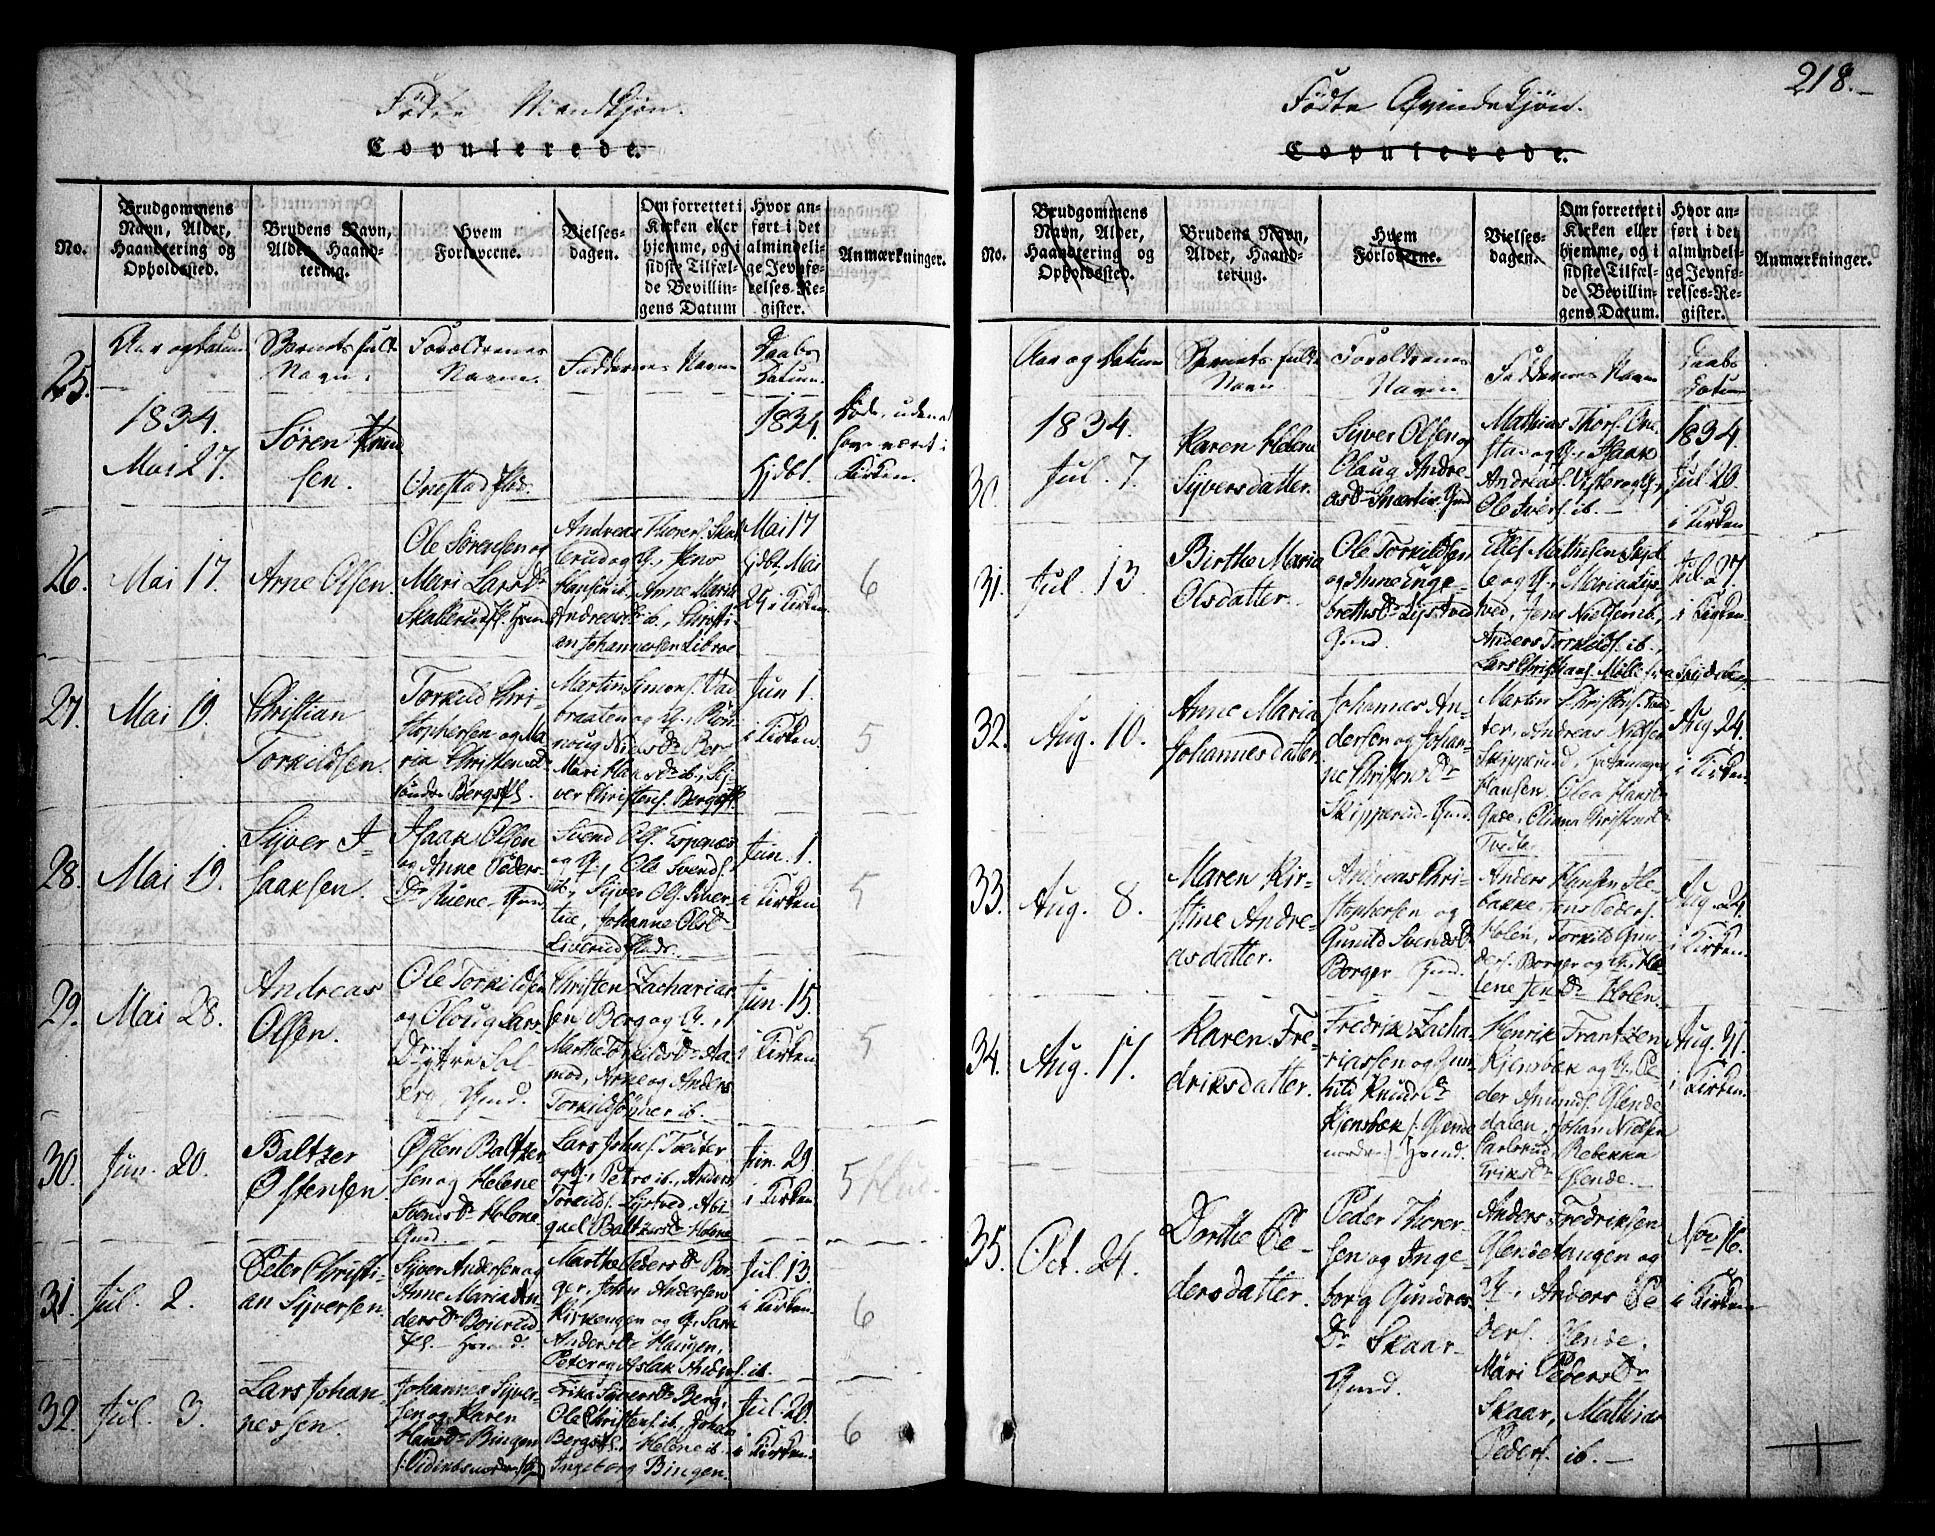 Fødte Mandkjøn.
Copulerede.
No.
Brudgommens Navn, Alder, Haandtering og Opholdssted.
Brudens Navn, Alder, Haandtering.
Hvem Forloverne.
Vielsesdagen.
Om forrettet i Kirken eller hjemme, og i sidste Tilfælde Bevillingens Datum
Hvor anført i det almindelige Jevnførelses-Register.
Anmærkninger.
Aar og Datum
Barnets fulde Navn.
Forældrenes Navne.
Faddernes Navne
Daabs Datum.
25.
1834.
Mai 27.
Søren Knudsen.
Onestad
1834.
Hjdbt.
Død, uden at have været i Kirken.
26.
Mai 17.
Arne Olsen
Ole Sørensen og
Mari Larsdr
Skallerud
Andreas Thorers.
Hansen ib., Anne Maria
Andreasdr ib., Christian
Johannesen Libroe
Mai 17
Hjdbt. Mai
29 i Kirken
6
27.
Mai 19.
Christian
Torkildsen.
Torkild Christophersen og Maria Christensdr
søndre Bergs
Martin Simons.
braaten og
Nielsdr Ber-
Mari Hansdr ib., Sy-
ver Christens. Berg
Jun 1.
i Kirken.
5
28.
Mai 19.
Syver I-
saaksen.
Isaak Olsen
og Anne Peders-
Dr Ruene
Svend Ols. Espenæs
og Q., Ole Svends.
ib., Syver Ols.
Johanne Olsdr
Liverud
Jun. 1.
i Kirken
5
29.
Mai 28.
Andreas
Olsen.
Ole Torkildsen
og Oloug Lars
Dr ytre Sol-
berg,
Christen Zacharias-
sen Berg og Q.,
Marthe Torkildsdr Aa-
mod, Arne og Anders
Torkildsønner ib.
Jun. 15.
i Kirken.
5
30.
Jun. 20.
Baltzer
Østensen.
Østen Baltzer-
sen og Helene
Svensdr Holene
Lars Johns. Tveter
og Q., Petro ib., Anders
Torkilds. Lystved, Abi-
gael Baltzersdr Holene
Jun. 29.
i Kirken
5
31.
Jul. 2.
Peter Christi-
an Syversen.
Syver Andersen og
Anne Maria An-
dersdr Boierud
Marthe Pedersdr Bor-
ger, John Andersen
Kirkeengen og Q., Sara
Andersdr Haugen,
Peter og Aslak Anders. ib.
Jul 13.
i Kirken.
6
32.
Jul. 3.
Lars Johan-
nessen.
Johannes Syver-
sen og Karen
Hansdr Bingen
Erika Syversdr Berg,
Ole Christens. ib., Johan
Bergs, Helene ib.
Ingeborg Bingen.
Jul. 20.
i Kirken.
6
218.
Fødte Qvindekjøn.
Copulerede.
No.
Brudgommens Navn, Alder, Haandtering og Opholdssted.
Brudens Navn, Alder, Haandtering.
Hvem Forloverne.
Vielsesdagen.
Om forrettet i Kirken eller hjemme, og i sidste Tilfælde Bevillingens Datum.
Hvor anført i det almindelige Jevnførelses-Register.
Anmærkninger.
Aar og Datum
Barnets fulde Navn
Forældrenes Navne
Faddernes Navne
Daabs Datum
30.
1834.
Jul. 7.
Karen Helene
Syversdatter.
Syver Olsen og
Olaug Andre-
asdr
Mathias Thors. One-
stad og Q., Isaak
Andreas.
Ole Ivers. ib.
1834.
Jul. 20.
i Kirken
31.
Jul. 13.
Birthe Maria
Olsdatter.
Ole Torkildsen
og Anne Inge-
brethsdr Lystved
Ellef Mathisen
og Q., Maria Lyst-
ved, Jens Nielsen ib.,
Anders Torkilds. ib.,
Lars Christians.
Jul 27.
i Kirken.
32.
Aug. 10.
Anne Maria
Johannesdatter.
Johannes An-
dersen og Johan-
ne Christensdr
Skipperud
Martin Christens. Tve-
ter, Andreas Nielsen
Skipperud,
Hansen, Olea Hansd
Gude, Oliana Christensd
Tveter
Aug 24.
i Kirken
33.
Aug. 8.
Maren Kir-
stine Andre-
asdatter.
Andreas Chri-
stophersen og
Gunild Svendsdr
Borger
Anders Hansen He-
bakke, Jens Peders.
Holen, Torkild Gun-
ders. Borger og Q., He-
lene Jensdr Holen.
Aug 24.
i Kirken.
34.
Aug. 17.
Karen Fre-
driksdatter.
Fredrik Zacha-
riassen og Gun-
hild Knudsdr
Kjensbæk (Glende
nordre)
Henrik Frantzen
Kjensbæk og Q., Pe-
der Amunds. Glende
dalen, Johan Nielsen
Carlsrud, Rebekka
Eriksdr Glende.
Aug. 31.
i Kirken.
35.
Oct. 24.
Dorthe Pe-
dersdatter.
Peder Thorer-
sen og Inge-
borg Gunders
Dr Skaar-
Anders Fredriksen
Glendehaugen og
Q., Anders Pe-
ders. Glende.
Mari Pedersdr
Skaar, Mathias
Peders. ib.
Nov 16.
i Kirken